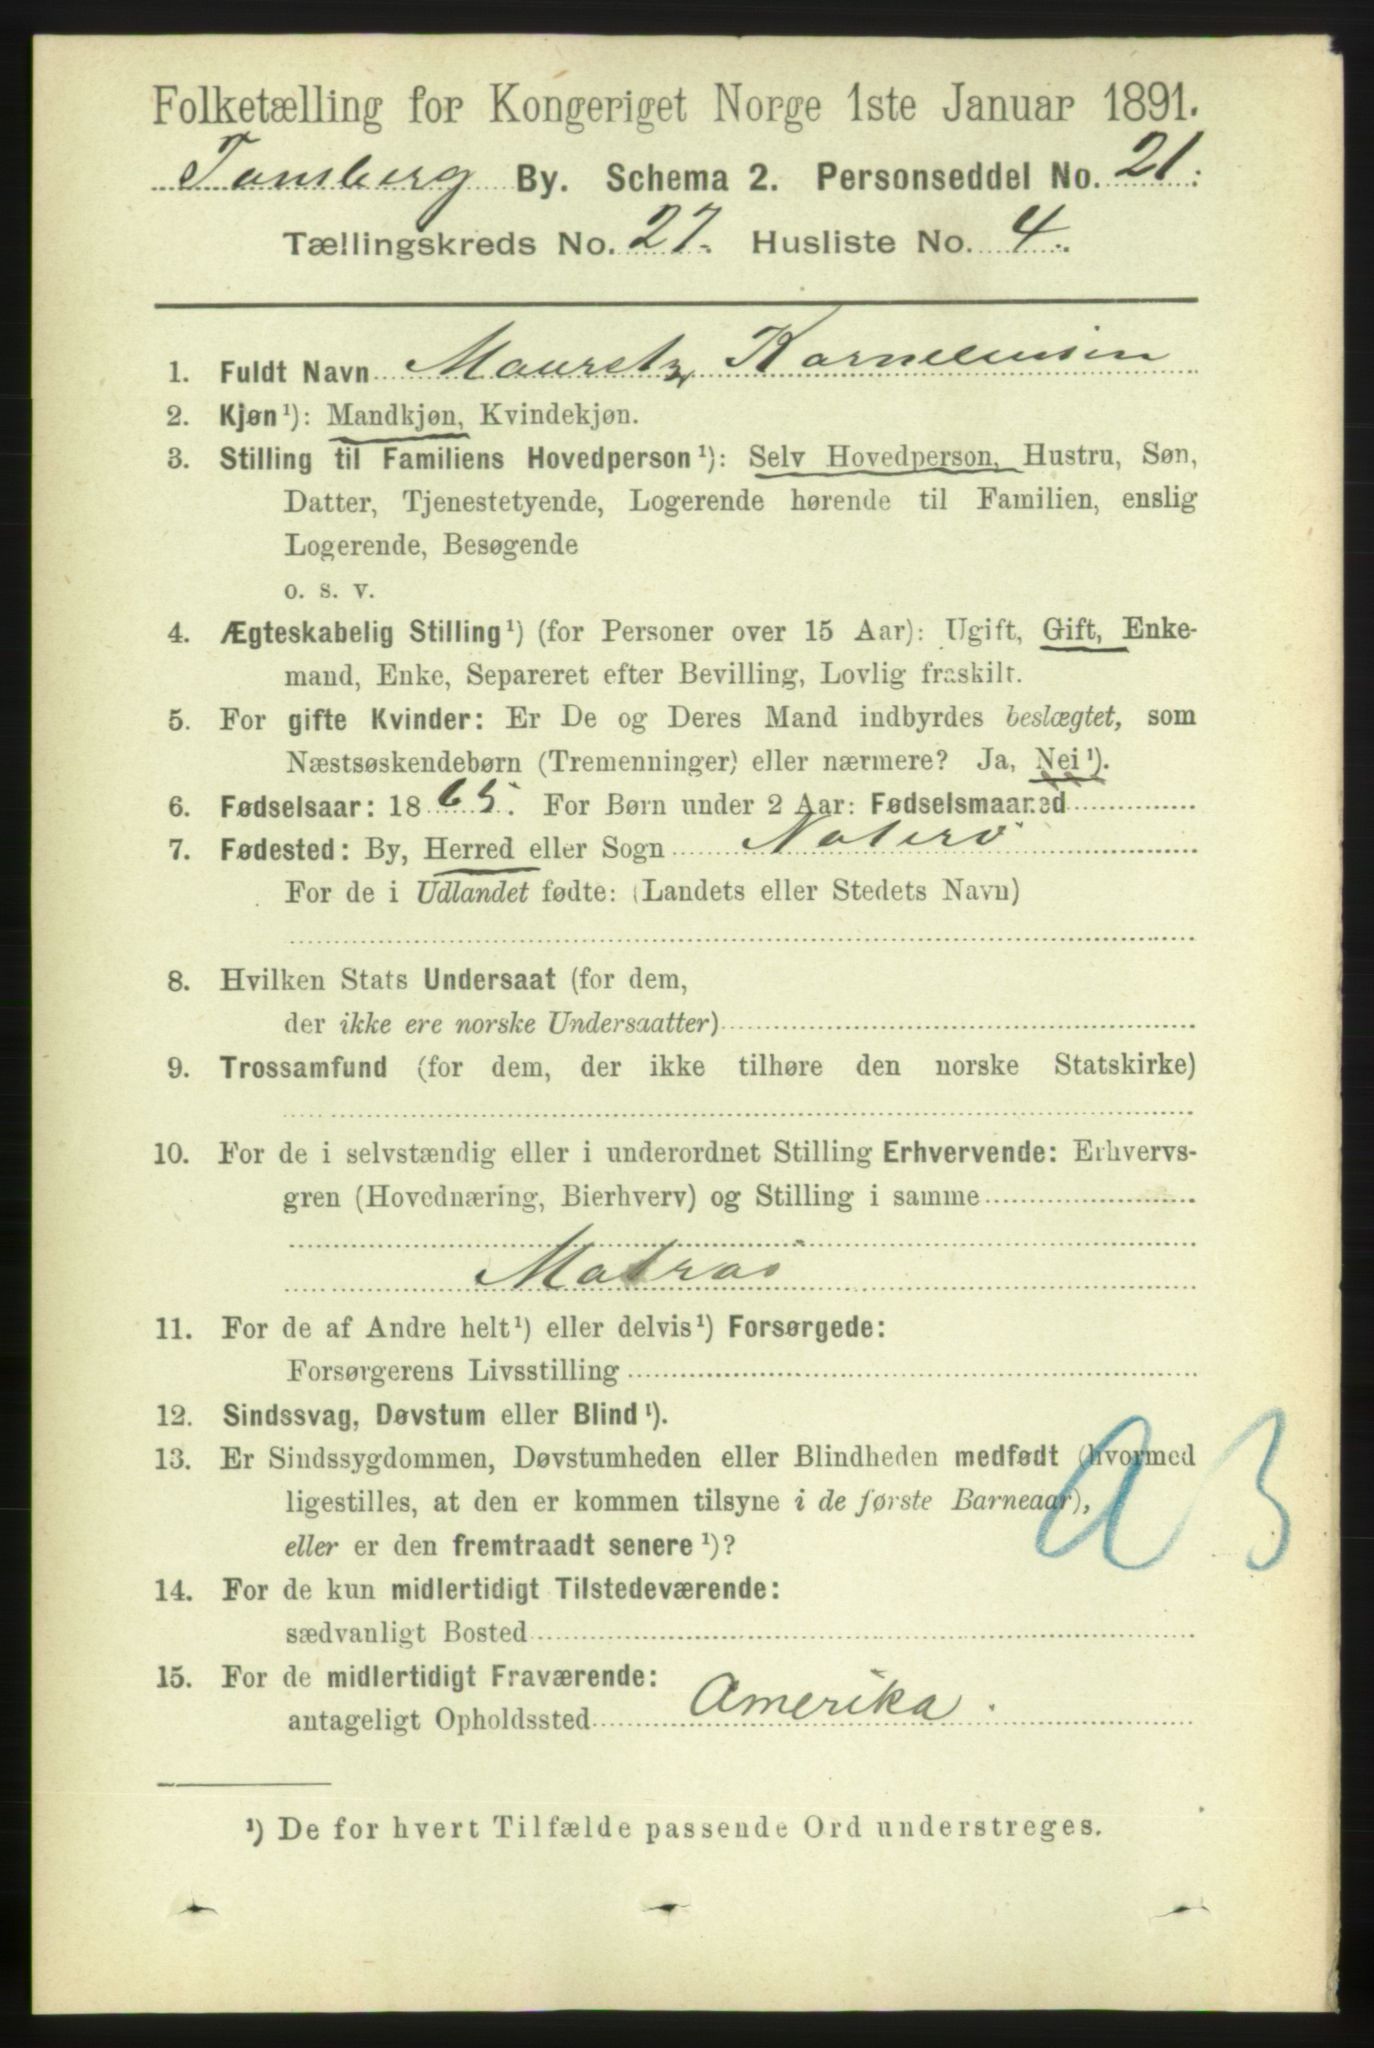 Folketælling for Kongeriget Norge 1ste Januar 1891.
Tønsberg By. Schema 2. Personseddel No. 21.
Tællingskreds No. 27. Husliste No. 4.
1. Fuldt Navn Mauretz Karneliusen
2. Kjøn¹): Mandkjøn, Kvindekjøn.
3. Stilling til Familiens Hovedperson¹): Selv Hovedperson, Hustru, Søn,
Datter, Tjenestetyende, Logerende hørende til Familien, enslig
Logerende, Besøgende
o. s. v.
4. Ægteskabelig Stilling¹) (for Personer over 15 Aar): Ugift, Gift, Enke-
mand, Enke, Separeret efter Bevilling, Lovlig fraskilt.
5. For gifte Kvinder: Er De og Deres Mand indbyrdes beslægtet, som
Næstsøskendebørn (Tremenninger) eller nærmere? Ja, Nei¹).
6. Fødselsaar: 1865. For Børn under 2 Aar: Fødselsmaaned
7. Fødested: By, Herred eller Sogn Noterø
For de i Udlandet fødte: (Landets eller Stedets Navn)
8. Hvilken Stats Undersaat (for dem,
der ikke ere norske Undersaatter)
9. Trossamfund (for dem, der ikke tilhøre den norske Statskirke)
10. For de i selvstændig eller i underordnet Stilling Erhvervende: Erhvervs-
gren (Hovednæring, Bierhverv) og Stilling i samme
Matros
11. For de af Andre helt¹) eller delvis¹) Forsørgede:
Forsørgerens Livsstilling
12. Sindssvag, Døvstum eller Blind¹).
13. Er Sindssygdommen, Døvstumheden eller Blindheden medfødt (hvormed
ligestilles, at den er kommen tilsyne i de første Barneaar),
eller er den fremtraadt senere¹)?
14. For de kun midlertidigt Tilstedeværende:
sædvanligt Bosted
15. For de midlertidigt Fraværende:
antageligt Opholdssted Amerika.
¹) De for hvert Tilfælde passende Ord understreges.